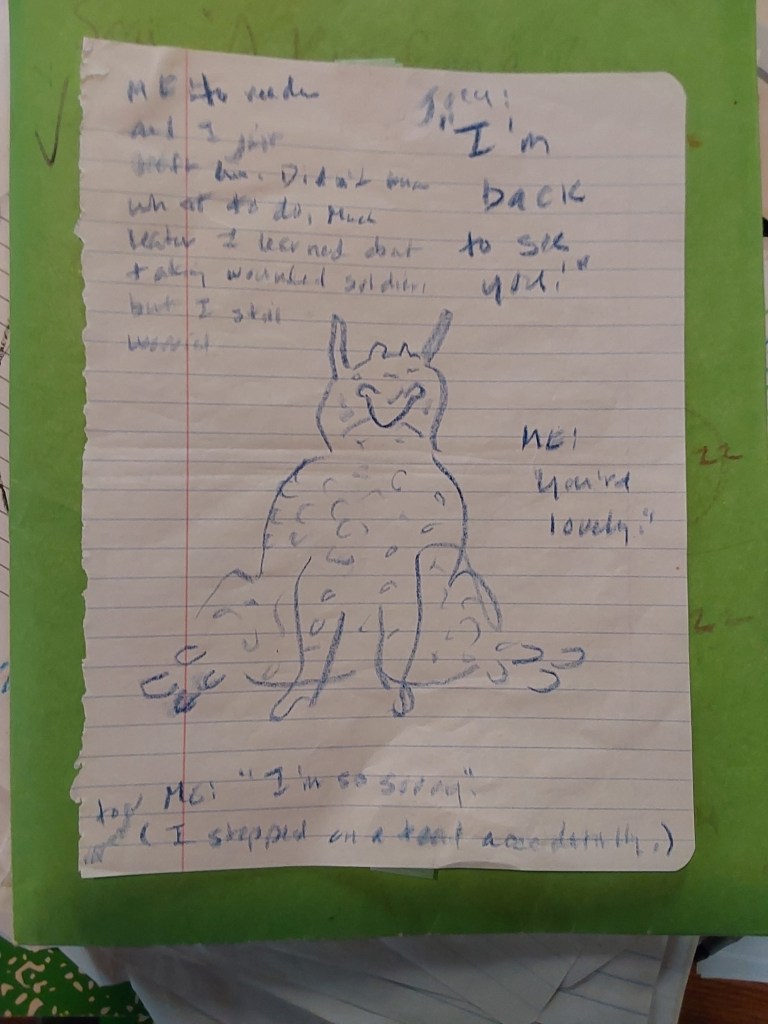 ME to reader
And I just
left him. Didn't know
what to do. Much
later I learned about
taking wounded soldiers
but I still
"I'm
back
to see
you!"
ME:
"You're
lovely."
toad
ME: "I'm so sorry".
(I stepped on a toad accedatnlly.)
22
22